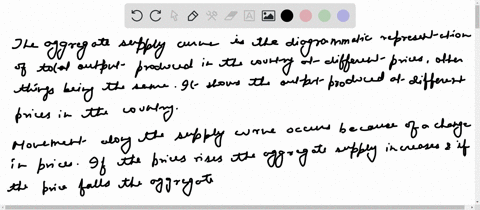 The aggregate supply curve is the diagrammatic represent-ation
of total output produced in the country at different prices, other
things being the same. It shows the output produced at different
prices in the country.
Movement along the supply curve occurs because of a change
in prices. If the prices rises the aggregate supply increases & if
the price falls the aggregate